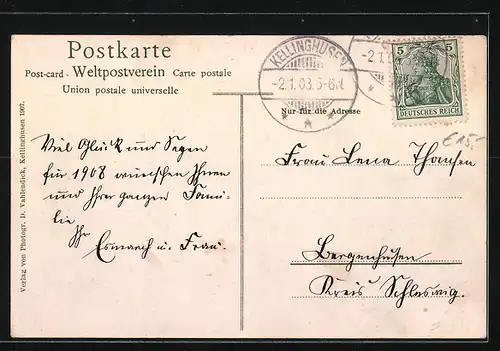 Postkarte
Post-card - Weltpostverein Carte postale
Union postale universelle
KELLINGHUSEN
-2.1.08.5-6N.
-2.1
5 5
DEUTSCHES REICH
Nur für die Adresse
€15,-
Viel Glück und Segen
für 1908 wünschen Ihnen
und Ihrer ganzen Fami-
lie
Ihr
Esmarch u. Frau.
Frau Lena Thomsen
Bergenhusen
Kreis Schleswig.
Verlag von Photogr. D. Vahlendick, Kellinghusen 1907.